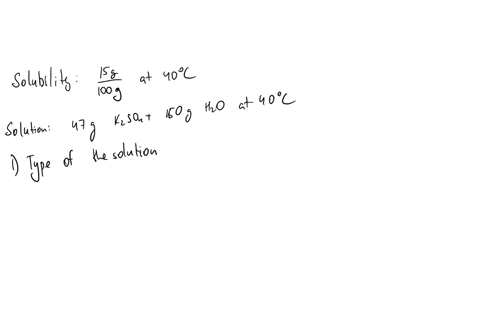 Solubility: 15g / 100g at 40°C
Solution: 47g K₂SO₄ + 150g H₂O at 40°C
1) Type of the solution